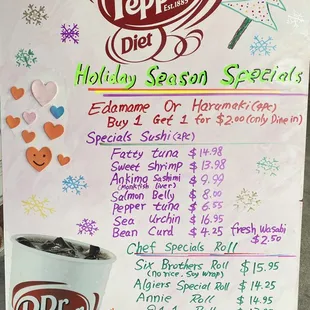 Pepper
Est.1885
Diet
Holiday Season Specials
Edamame Or Haramaki (2pc)
Buy 1 Get 1 for $2.00 (only Dine in)
Specials Sushi (2pc)
Fatty tuna $14.98
Sweet shrimp $13.98
Ankimo Sashimi $9.99
(Monkfish liver)
Salmon Belly $8.00
Pepper tuna $6.55
Sea Urchin $16.95
Bean Curd $4.25
fresh Wasabi
$2.50
Chef Specials Roll
Six Brothers Roll $15.95
(no rice. Soy wrap)
Algiers Special Roll $14.25
Annie Roll $14.95
DR